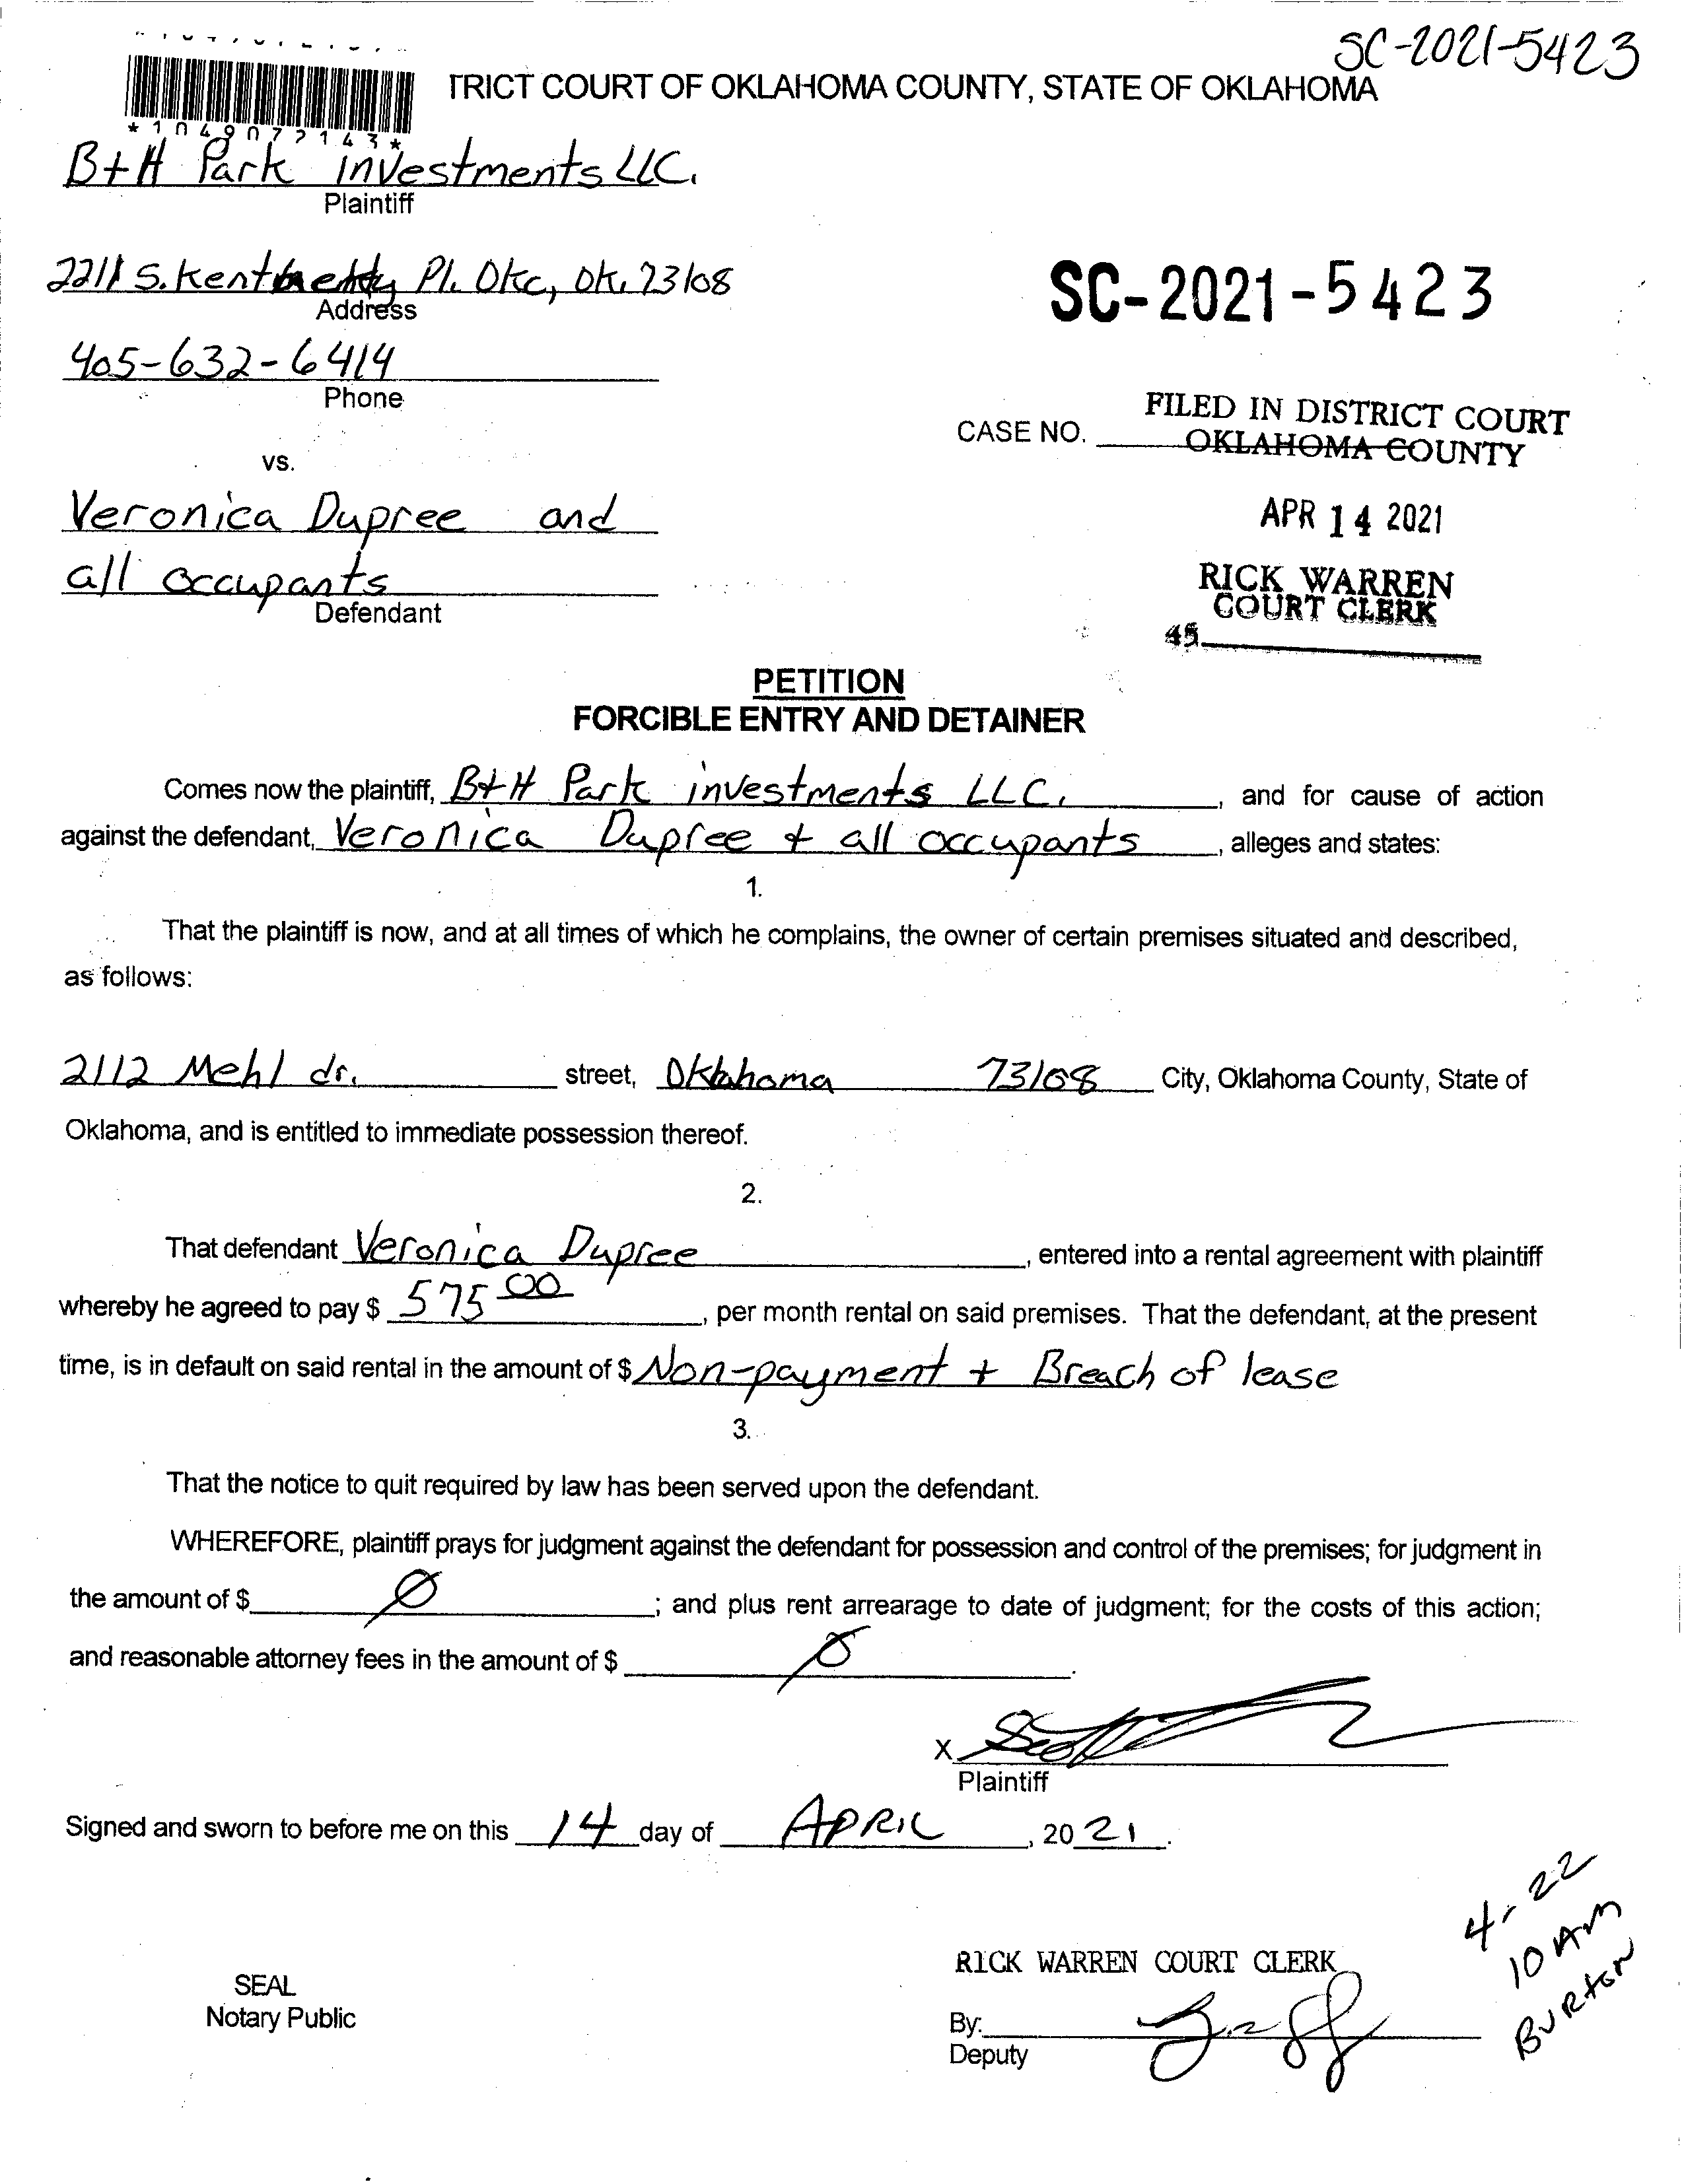 SC-2021-5423
TRICT COURT OF OKLAHOMA COUNTY, STATE OF OKLAHOMA
*1049072143*
B+H Park investments LLC.
Plaintiff
2211 S. Pl. Okc, Ok. 73108
Address
SC-2021-5423
405-632-6414
Phone
CASE NO.
FILED IN DISTRICT COURT
OKLAHOMA COUNTY
vs.
Veronica Dupree and
APR 14 2021
all occupants
Defendant
RICK WARREN
COURT CLERK
45
PETITION
FORCIBLE ENTRY AND DETAINER
Comes now the plaintiff, B+H Park investments LLC. , and for cause of action
against the defendant, Veronica Dupree + all occupants , alleges and states:
1.
That the plaintiff is now, and at all times of which he complains, the owner of certain premises situated and described,
as follows:
2112 Mehl dr. street, Oklahoma 73108 City, Oklahoma County, State of
Oklahoma, and is entitled to immediate possession thereof.
2.
That defendant Veronica Dupree , entered into a rental agreement with plaintiff
whereby he agreed to pay $ 575 00 , per month rental on said premises. That the defendant, at the present
time, is in default on said rental in the amount of $ Non-payment + Breach of lease
3.
That the notice to quit required by law has been served upon the defendant.
WHEREFORE, plaintiff prays for judgment against the defendant for possession and control of the premises; for judgment in
the amount of $ Ø ; and plus rent arrearage to date of judgment; for the costs of this action;
and reasonable attorney fees in the amount of $ Ø .
X
Plaintiff
Signed and sworn to before me on this 14 day of APRIL , 20 21 .
4-22
10 AM
BURTON
RICK WARREN COURT CLERK
SEAL
Notary Public
By:
Deputy